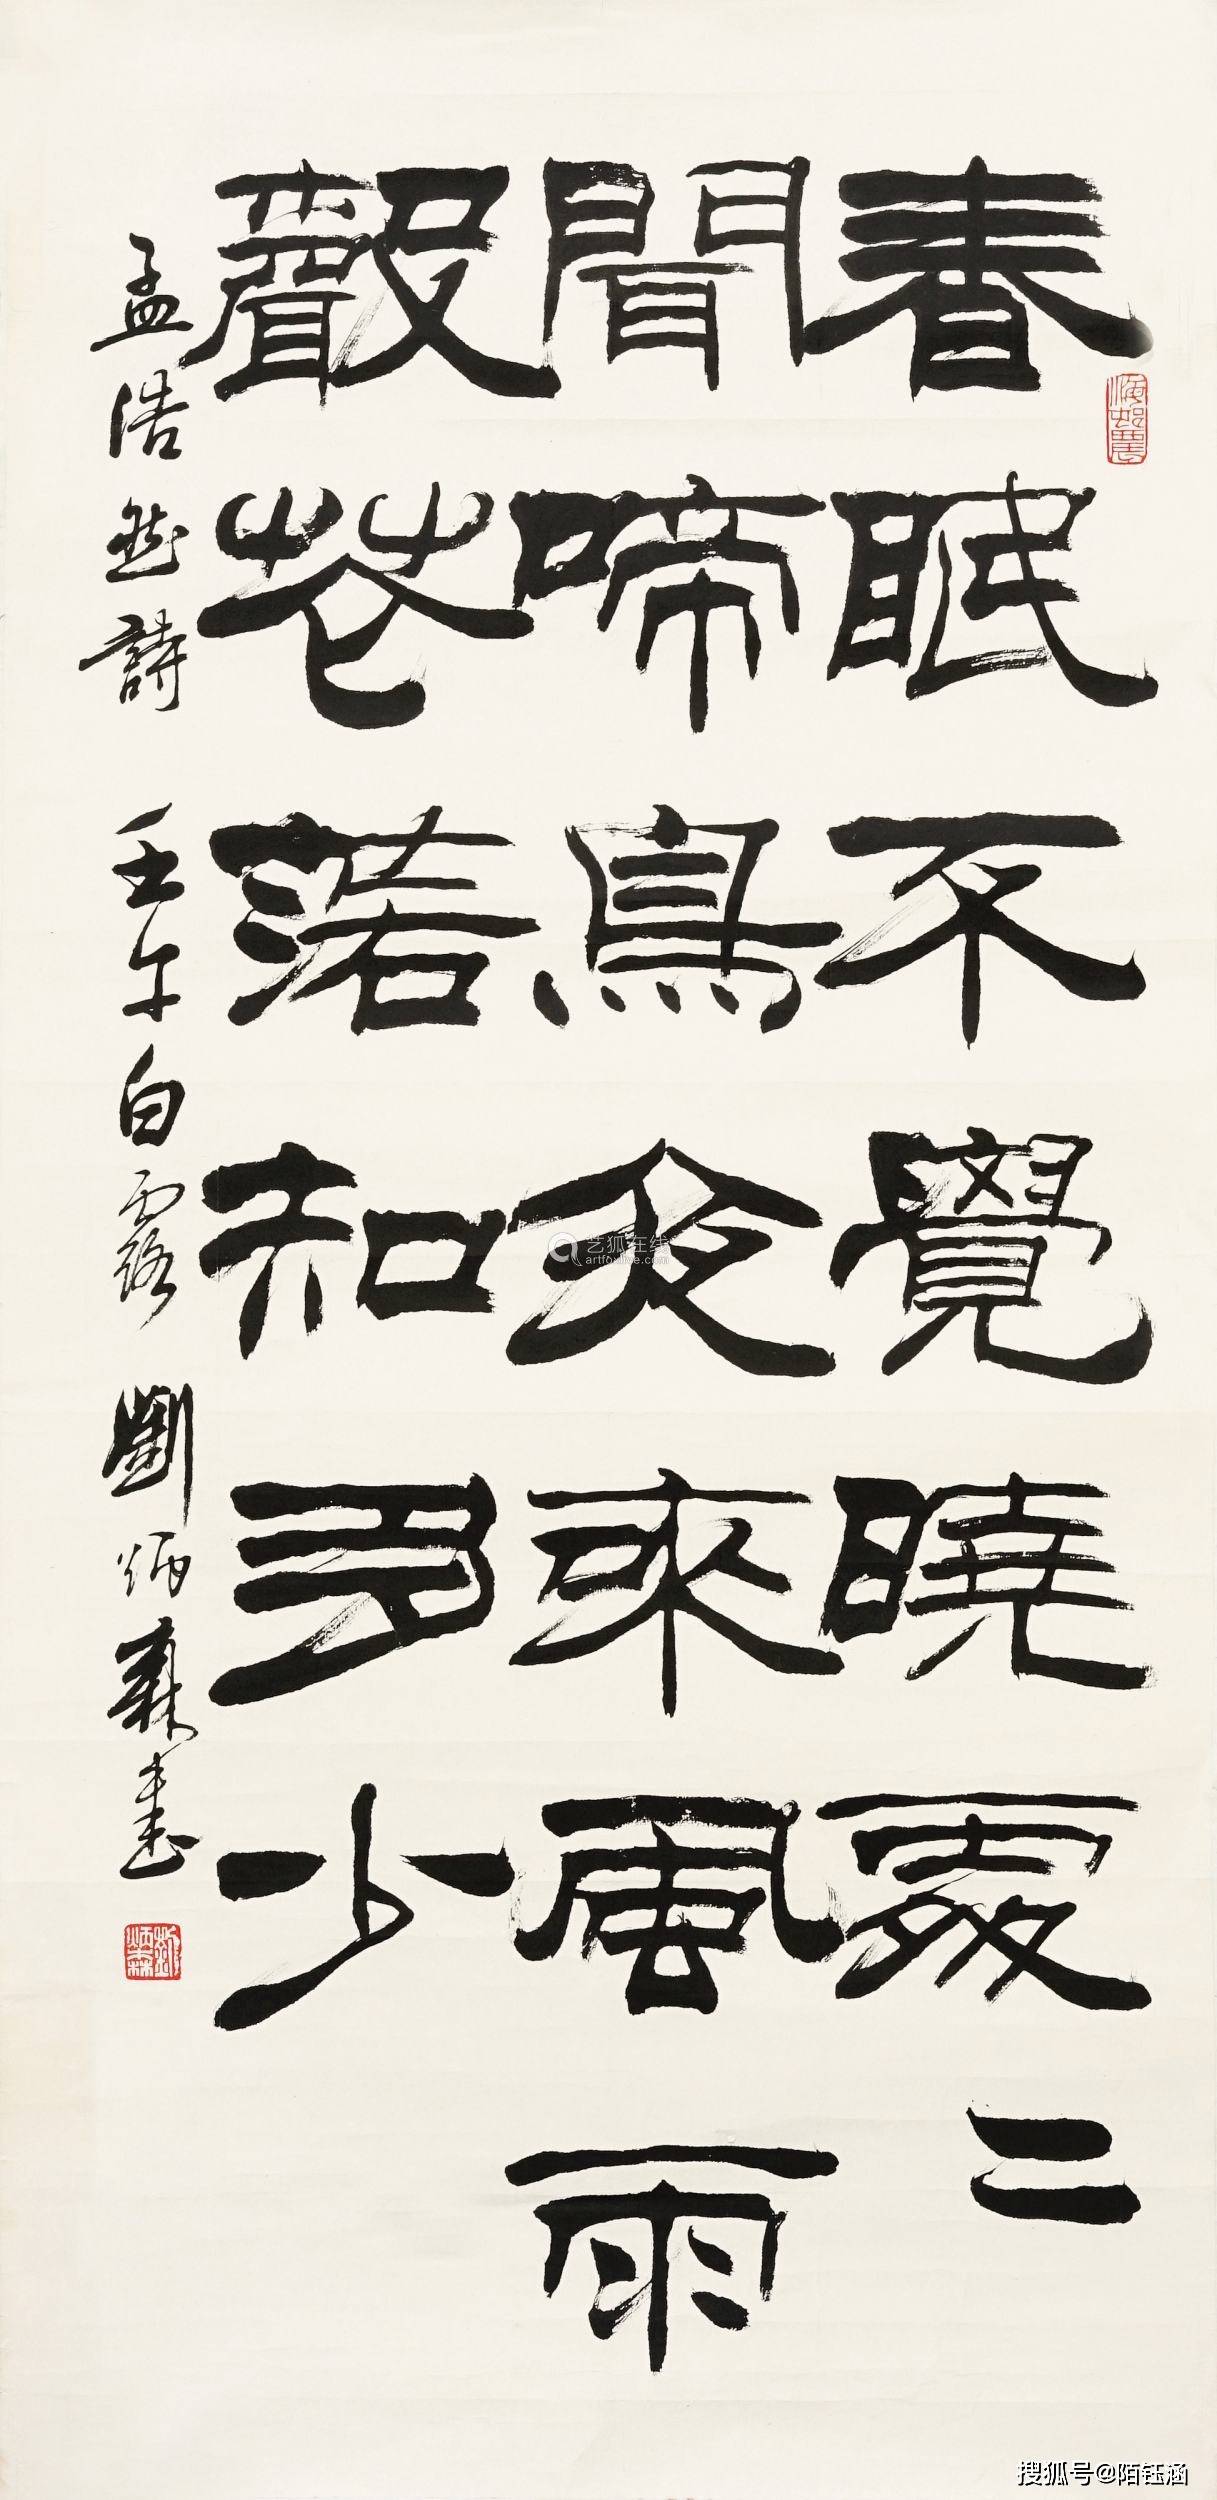 春眠不覺曉處二
聞啼鳥夜來風雨
聲花落知多少
孟浩然詩 壬午白露 劉炳森書
劉炳森
艺狐在线
artfoxlive.com
搜狐号@陌钰涵